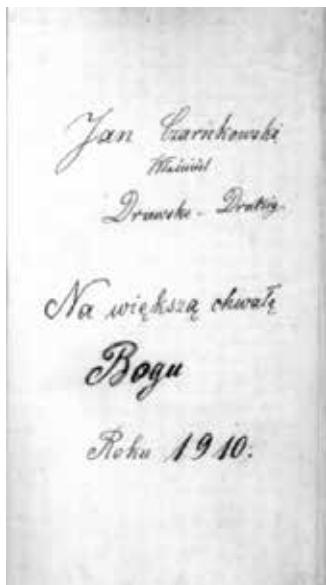 Jan Czarnkowski
Drawsko - Dratzig.
Na większą chwałę
Bogu
Roku 1910.